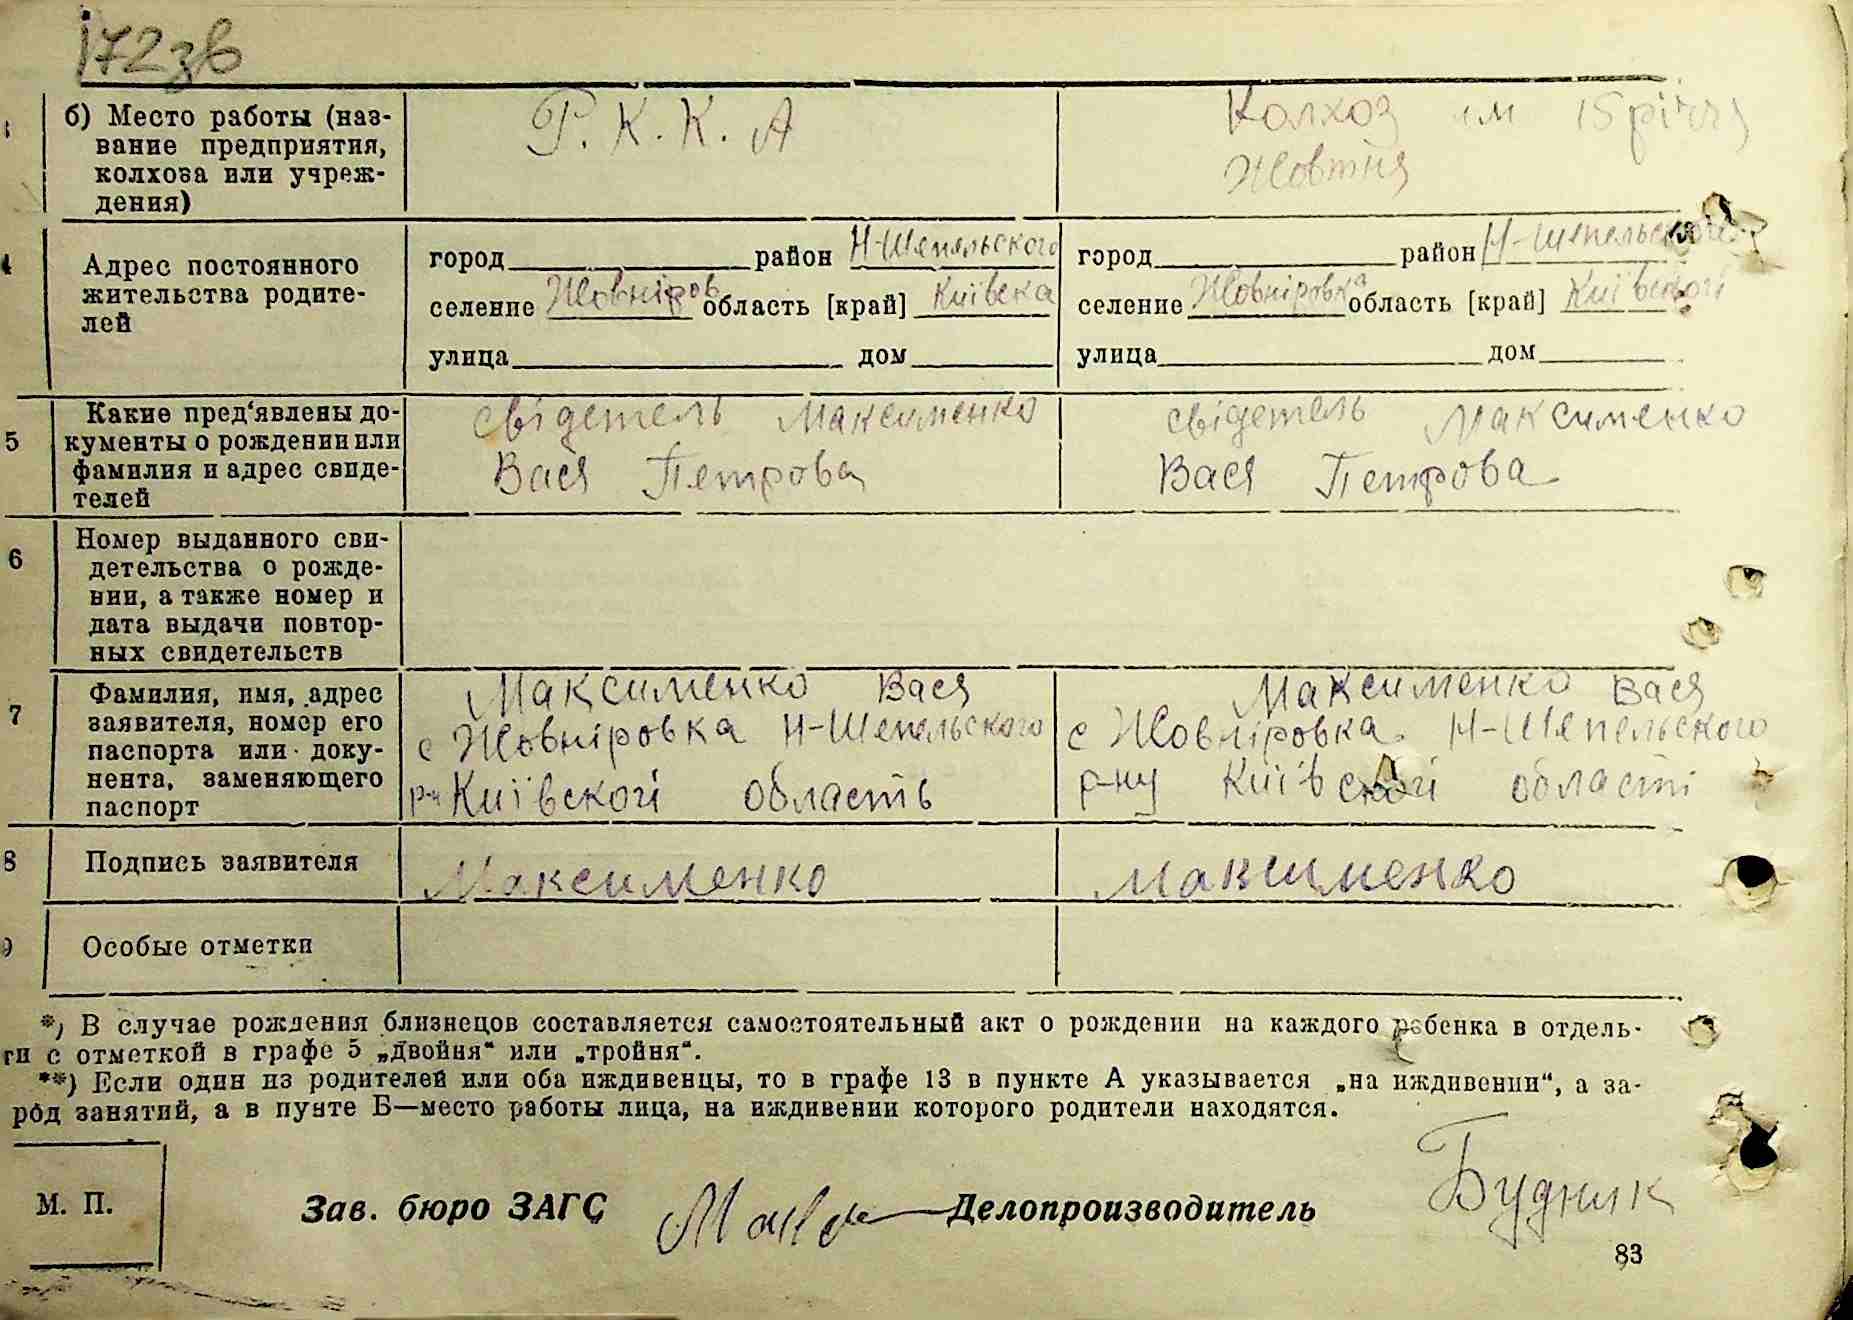 172зв
б) Место работы (наз-
вание предприятия,
колхоза или учреж-
дения)
Р. К. К. А
Колхоз им 15 річчя
Жовтня
4 Адрес постоянного
жительства родите-
лей
город район Н-Шепельского
селение Жовніров область [край] Київска
улица дом
город район Н-Шепельской
селение Жовніровка область [край] Київской
улица дом
5 Какие пред'явлены до-
кументы о рождении или
фамилия и адрес свиде-
телей
свідетель Максименко
Вася Петрова
свідетель Максименко
Вася Петрова
6 Номер выданного сви-
детельства о рожде-
нии, а также номер и
дата выдачи повтор-
ных свидетельств
7 Фамилия, имя, адрес
заявителя, номер его
паспорта или доку-
нента, заменяющего
паспорт
Максименко Вася
с Жовніровка Н-Шепельского
р-н Київской область
Максименко Вася
с Жовніровка Н-Шепельского
р-ну Київской області
8 Подпись заявителя
Максименко
Максименко
9 Особые отметки
*) В случае рождения близнецов составляется самостоятельный акт о рождении на каждого ребенка в отдель-
ги с отметкой в графе 5 „двойня“ или „тройня“.
**) Если один из родителей или оба иждивенцы, то в графе 13 в пункте А указывается „на иждивении“, а за-
род занятий, а в пункте Б—место работы лица, на иждивении которого родители находятся.
М. П.
Зав. бюро ЗАГС Делопроизводитель Будник
83